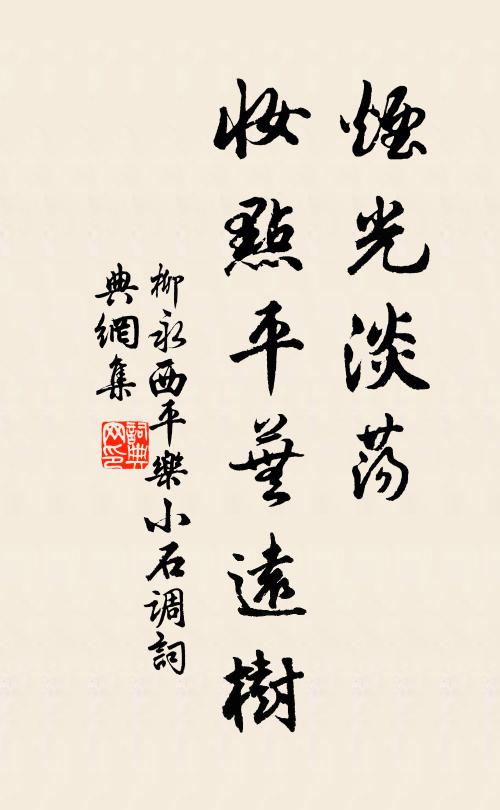 煙光淡荡
妝點平蕪遠樹
柳永西平樂小石调詞
典網集
詞典網印